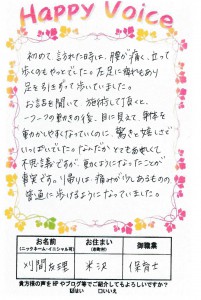 Happy Voice
初めて訪れた時は、腰が痛く、立って
歩くのもやっとでした。左足に痛れもあり
足を引きずって歩いていました。
お話を聞いて、施術して頂くと、
一つ一つの動きの後、目に見えて、身体を
動かしやすくなっていくのに、驚きと嬉しさで
いっぱいでした。なんだかとてもあやしくて
不思議ですが、動くようになったことが
事実です。帰りは、痛みが少しあるものの
普通に歩けるようになっていました。
お名前 お住まい 御職業
(ニックネーム・イニシャル可) (市町村)
米沢 保育士
貴方様の声をHPやブログ等でご紹介してもよろしいですか？
はい □いいえ